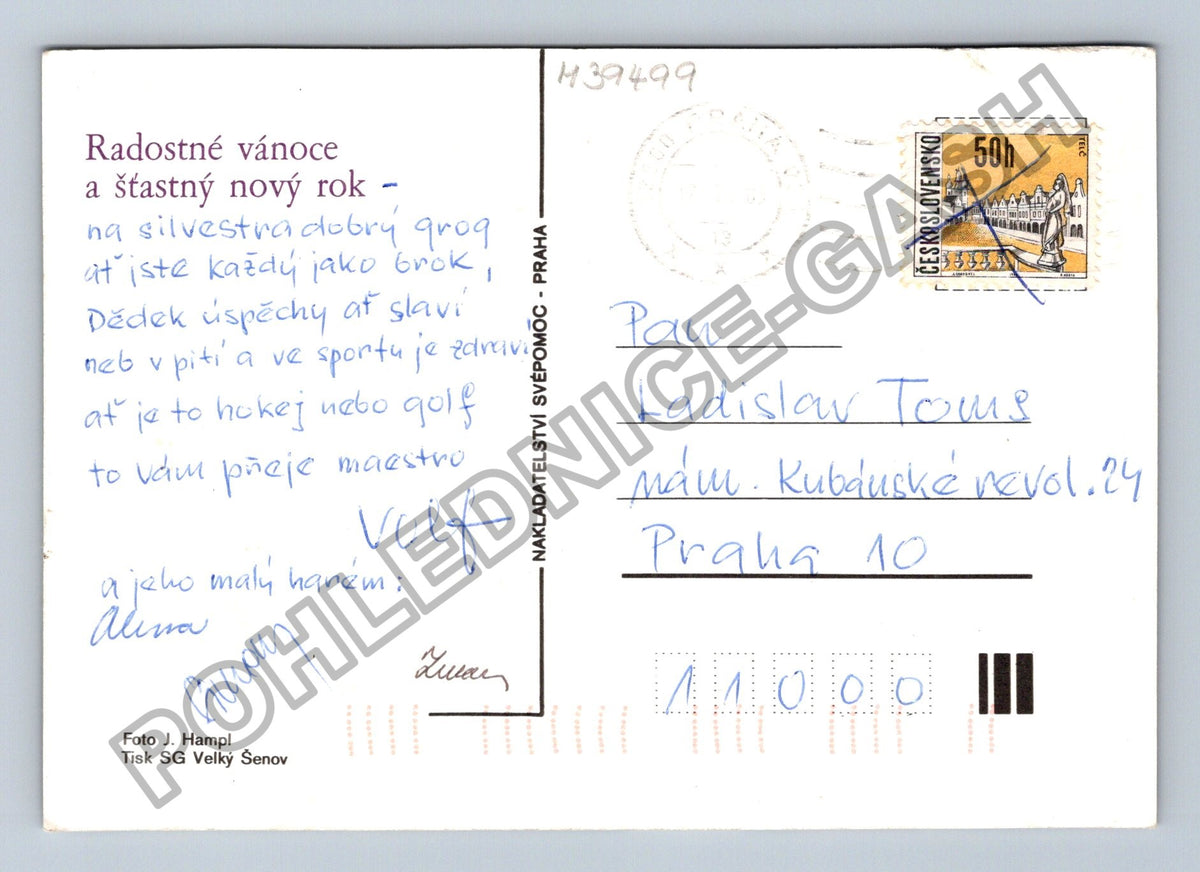 M39499
Radostné vánoce
a šťastný nový rok -
na silvestra dobrý grog
ať jste každý jako brok,
Dědek úspěchy ať slaví
neb v pití a ve sportu je zdraví
ať je to hokej nebo golf
to vám přeje maestro
Volf
a jeho malý harém:
Alena
Foto J. Hampl
Tisk SG Velký Šenov
NAKLADATELSTVÍ SVÉPOMOC - PRAHA
ČESKOSLOVENSKO
50h
TELČ
Pan
Ladislav Toms
nám. Kubánské revol. 24
Praha 10
11000
POHLEDNICE-GASH